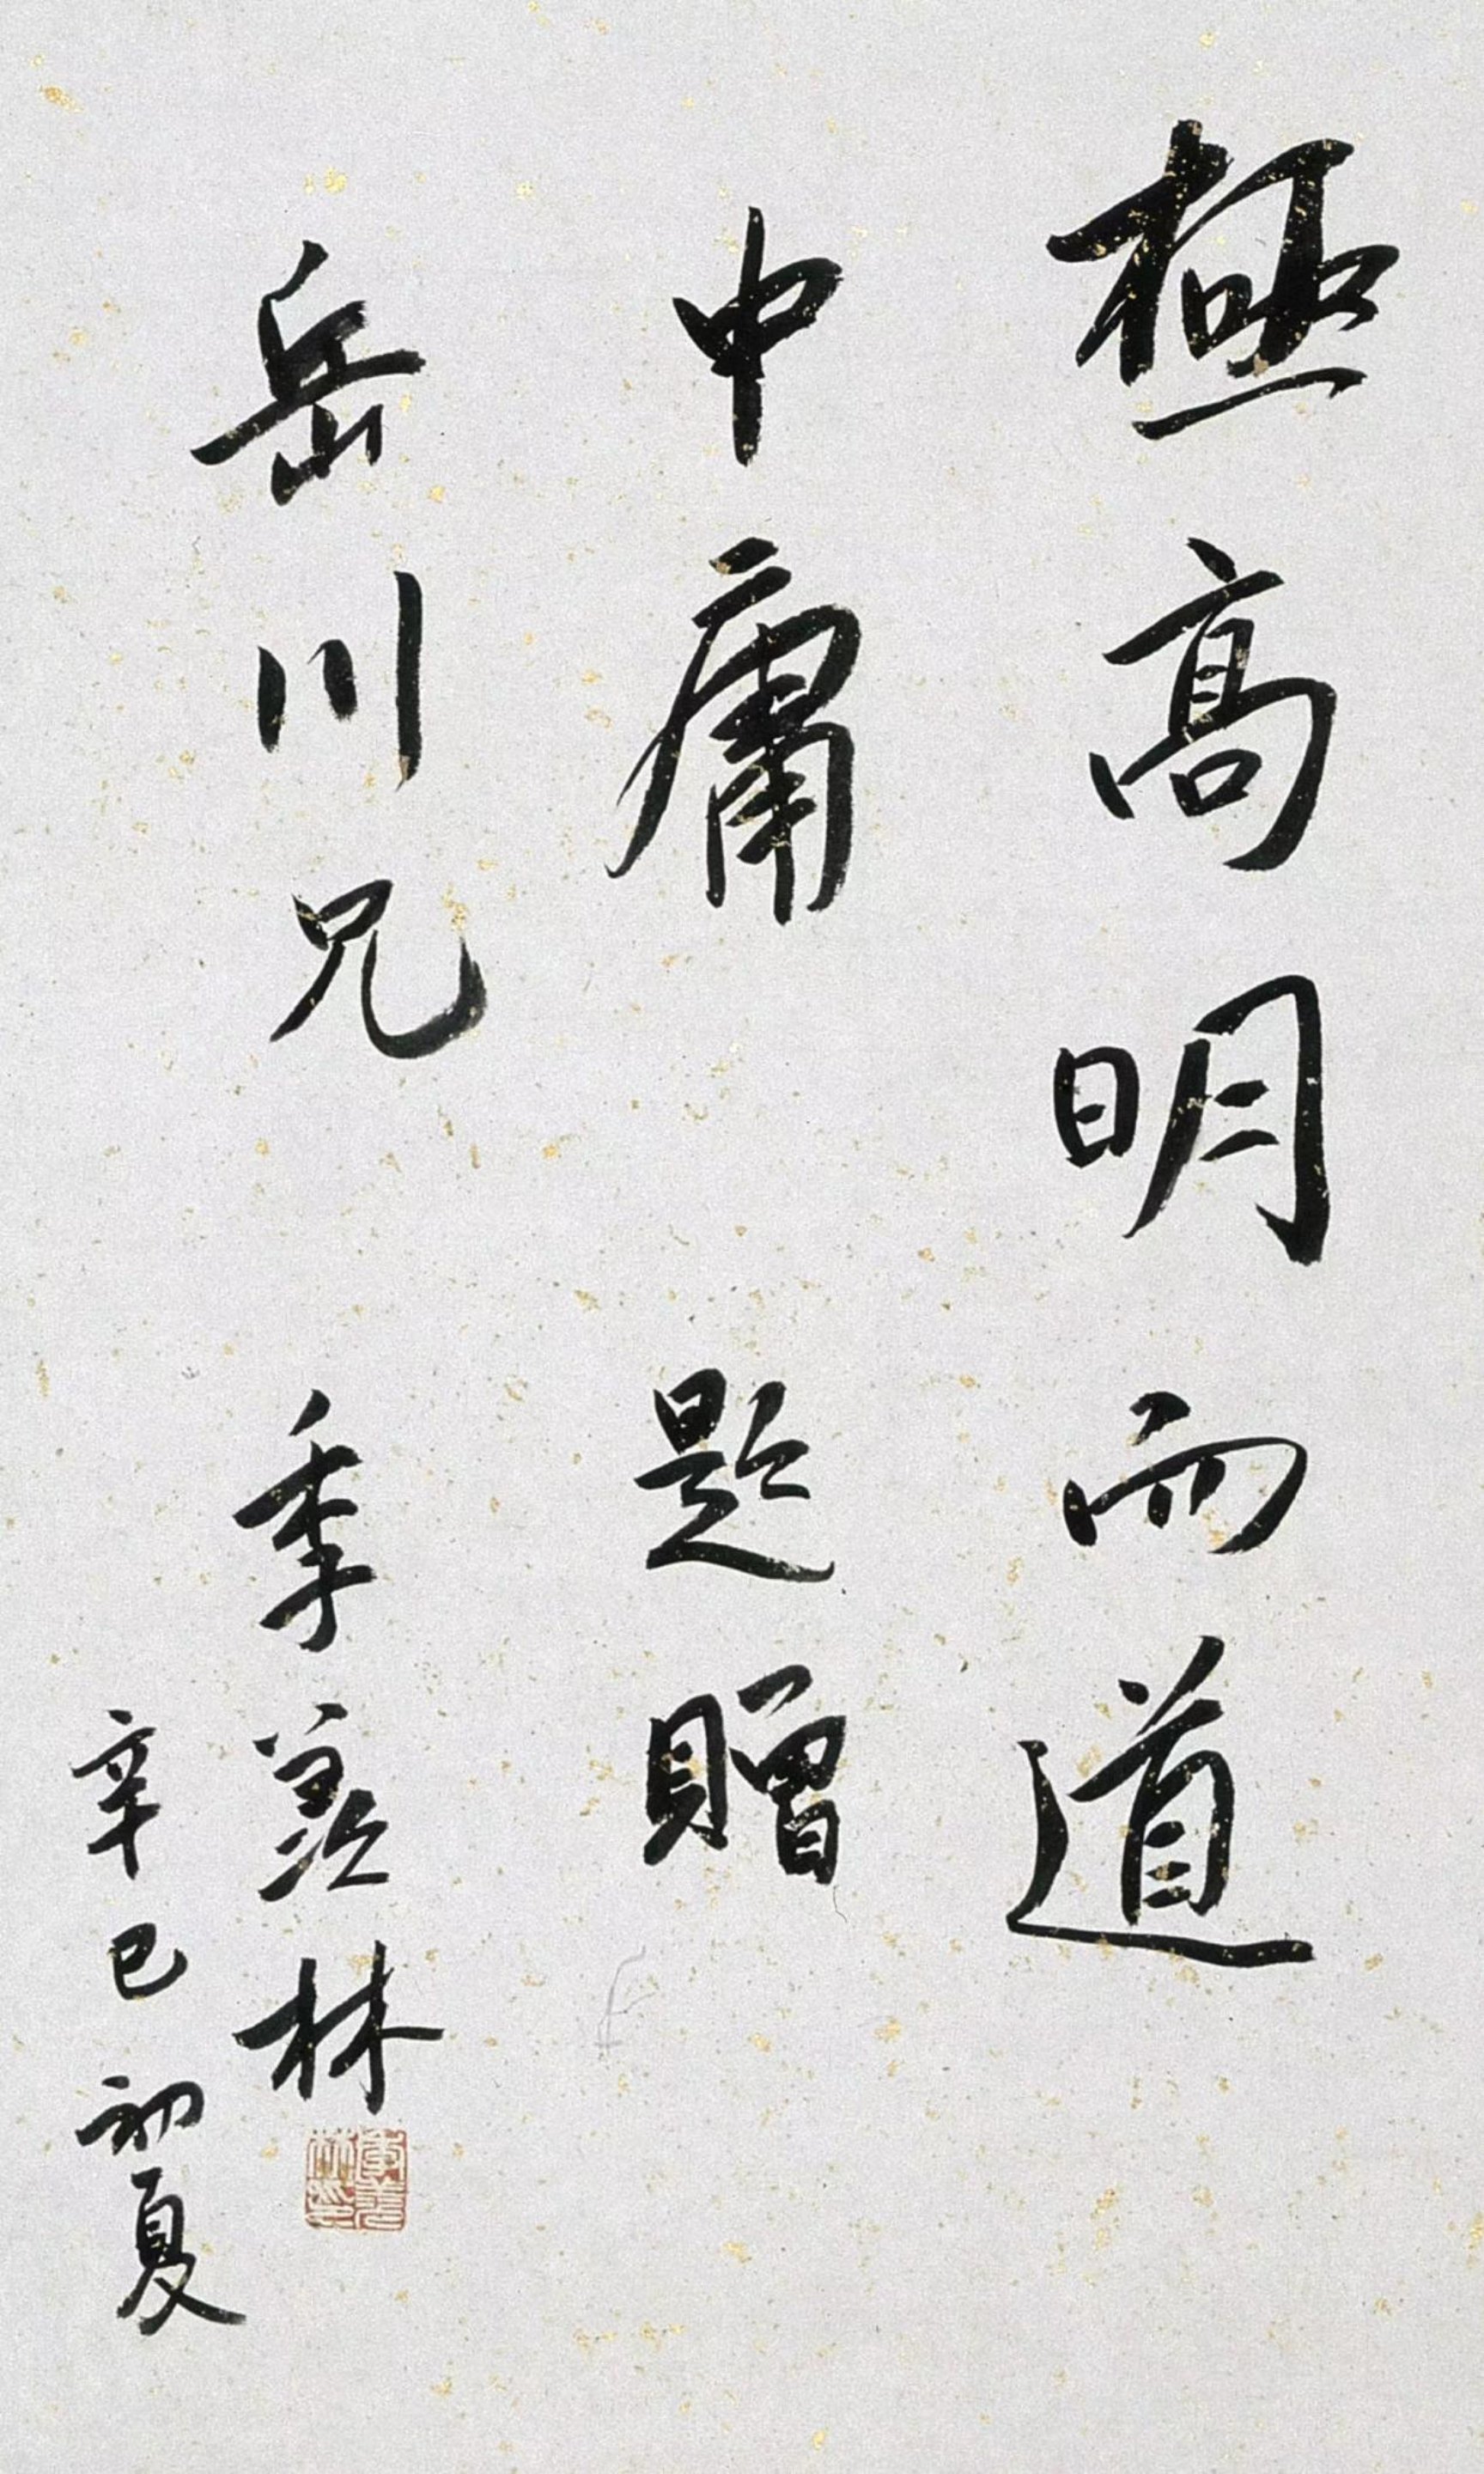 極高明而道
中庸 題贈
岳川兄 季羨林
辛巳初夏
季羨林印